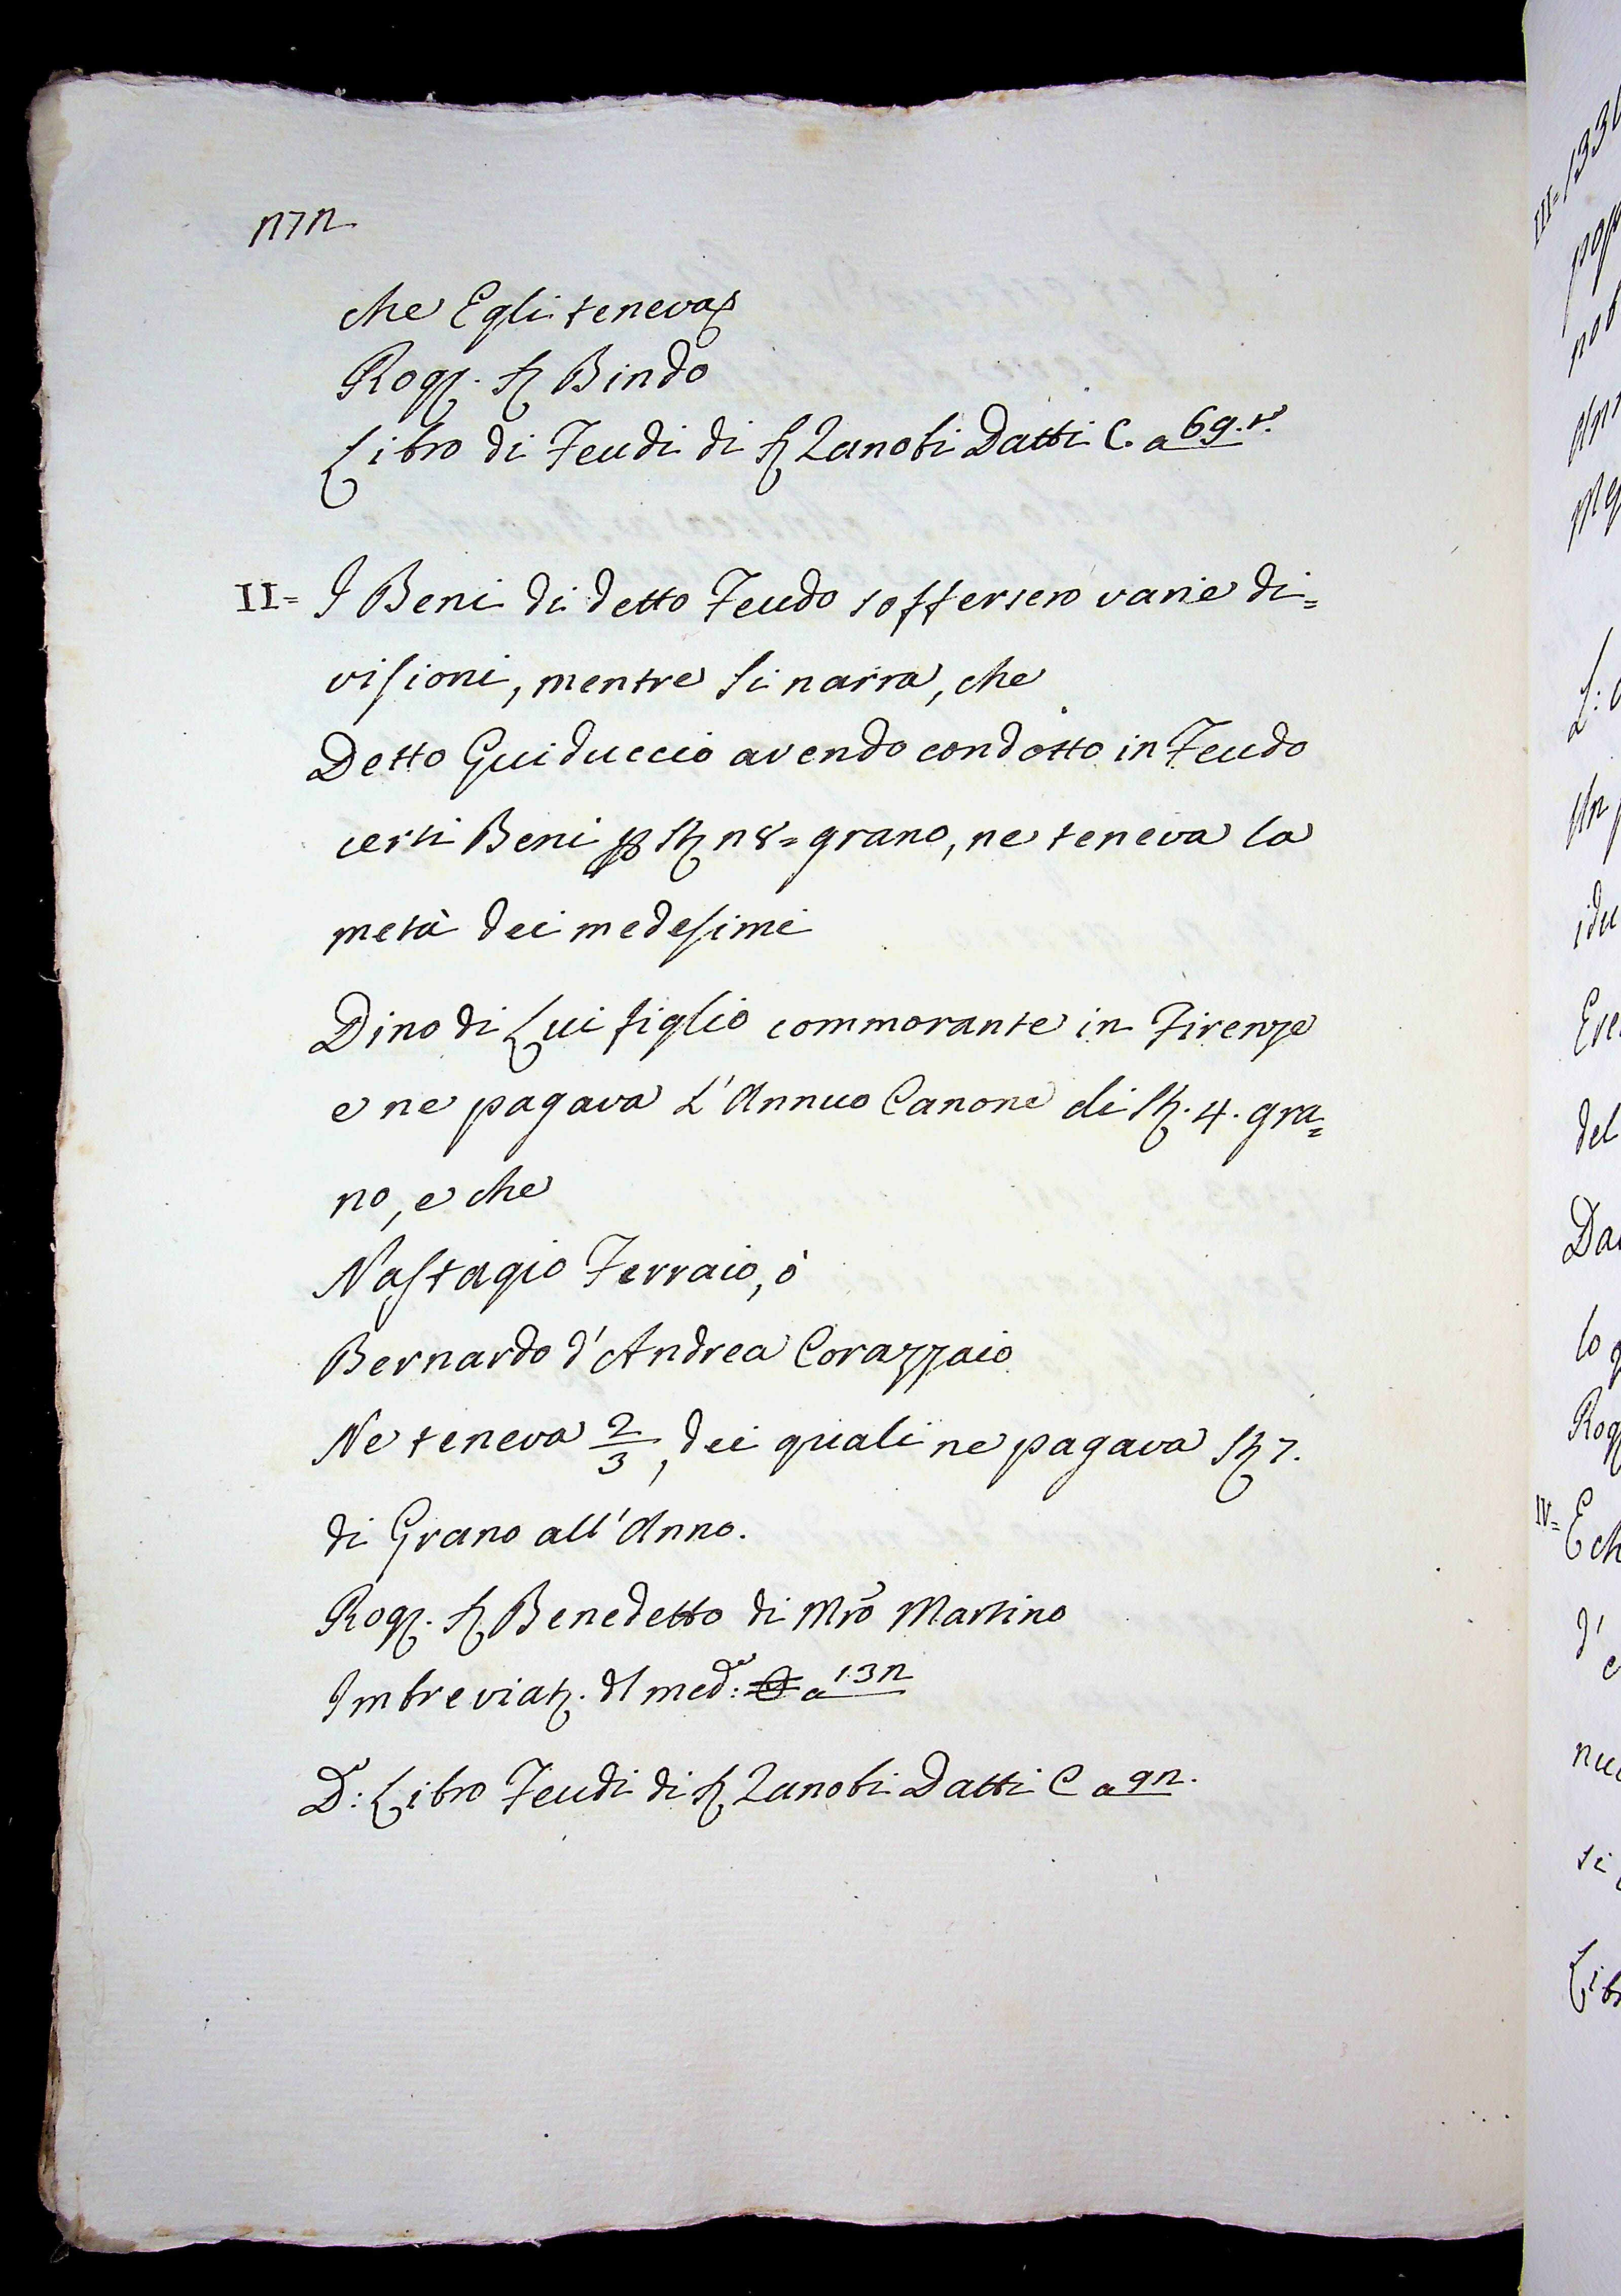 272
che Egli teneva
Rog. S. Bindo
Libro di Feudi di S. Zanobi Datti C. a 69. t.
II= I Beni di detto Feudo soffersero varie di=
visioni, mentre si narra, che
Detto Guiduccio avendo condotto in Feudo
certi Beni p St. 28= grano, ne teneva la
metà dei medesimi
Dino di Lui figlio commorante in Firenze
e ne pagava L'Annuo Canone di St. 4. gra=
no, e che
Nastagio Ferraio, ò
Bernardo d'Andrea Corazzaio
Ne teneva 2/3, dei quali ne pagava St. 7.
di Grano all'Anno.
Rog. S. Benedetto di Mro Martino
Imbreviat. dl med: C a 132
Do: Libro Feudi di S. Zanobi Datti C a 92.
III= 133
IV=